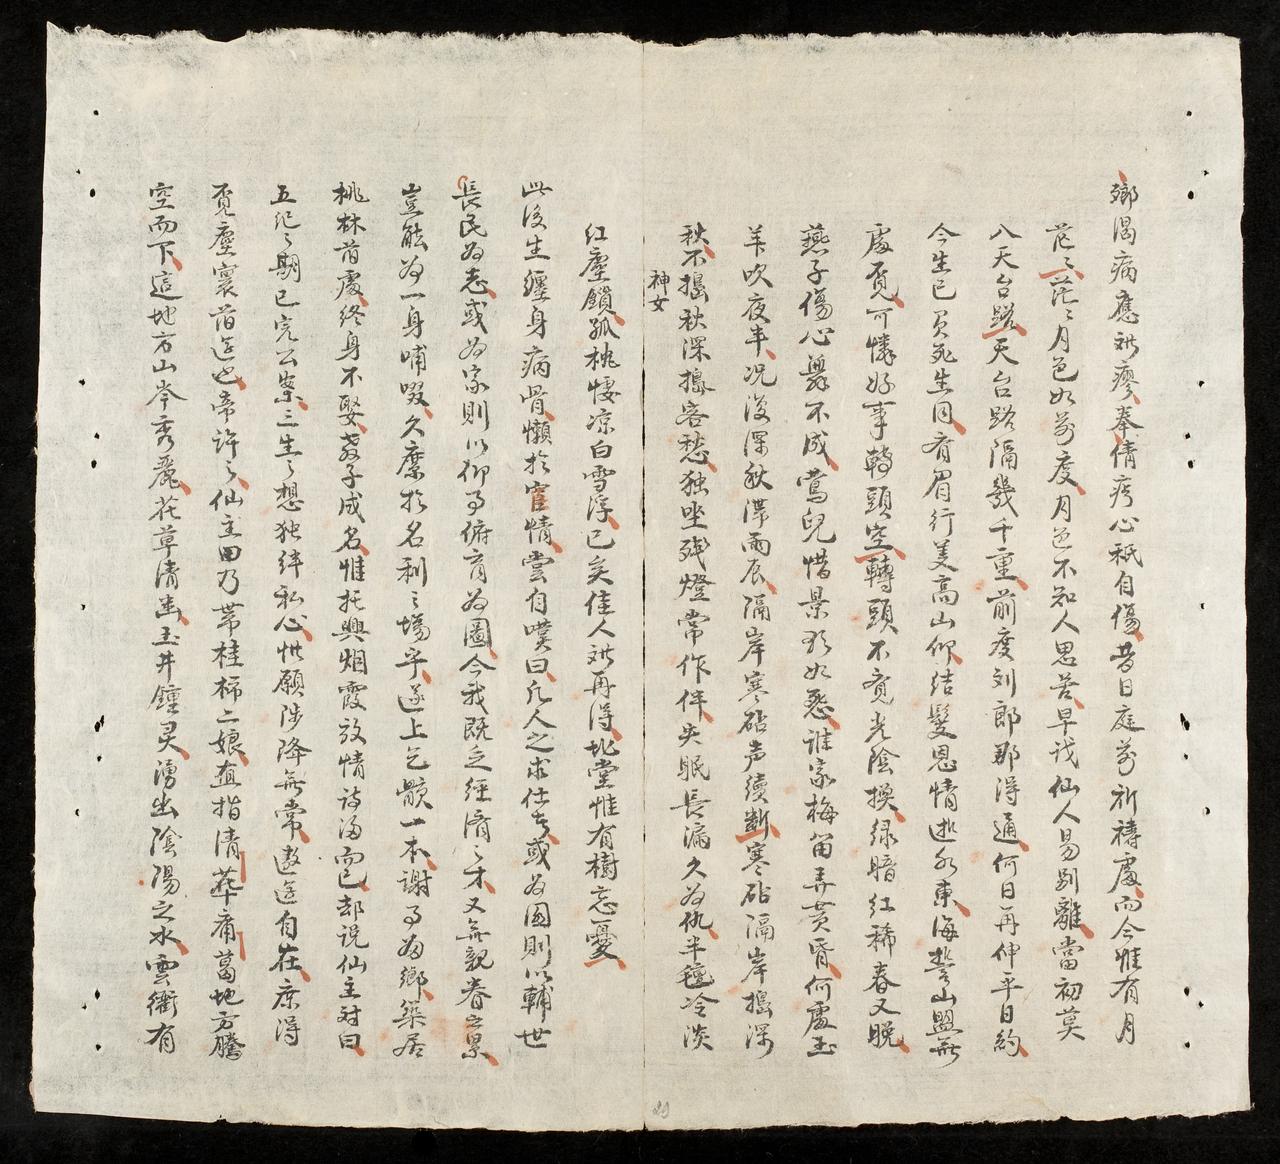 鄉渴病應難療奉倩疼心祇自傷昔日庭前祈禱處而今惟有月
茫々茫々月色如前度月色不知人思苦早識仙人易別離當初莫
八天台路天台路隔幾千重前度刘郎那得通何日再伸平日約
今生已負死生同看眉行美高山仰結髮恩情逝水東海誓山盟無
處覓可憐好事轉頭空轉頭不覺光陰換绿暗红稀春又晚
燕子傷心舞不成鶯兒惜景歌如怨誰家梅笛弄黄昏何處玉
羊吹夜半况復深秋滞雨辰隔岸寒砧声續斷寒砧隔岸搗深
秋不搗秋深搗客愁独坐残燈常作伴失眠長漏久為仇半氊冷淡
神女
红塵鎖孤桃悽凉白雪浮已矣佳人难再得北堂惟有樹忘憂
此後生纏身病骨懶於宦情嘗自嘆曰凡人之求仕者或為國則以輔世
長民為志或為家則以仰事俯育為圖今我既乏經濟之才又無親眷之累
豈能為一身哺啜久縻於名利之場乎遂上乞骸一本謝事為鄉築居
桃林苜處終身不娶教子成名惟托興烟霞放情詩酒而已却说仙主对曰
五纪之期已完公案三生之想独絆私心惟願陟降無常遨遊自在庶得
覓塵寰苜迹也帝许之仙主田乃帶桂柿二娘直指清華庸葛地方騰
空而下這地方山岑秀麗花草清幽玉井鍾灵湧出陰陽之水雲衢有
29